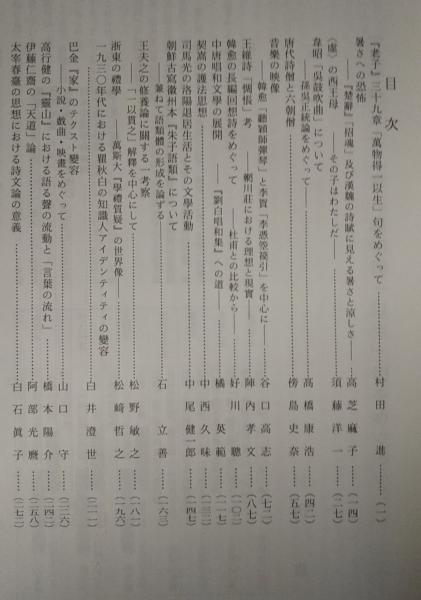 目次
『老子』三十九章「萬物得一以生」句をめぐって……村田進……(一)
暑さへの恐怖
——『楚辭』「招魂」及び漢魏の詩賦に見える暑さと涼しさ——高芝麻子……(一四)
〈虛〉の西王母——その子はわたしだ——須藤洋一……(二七)
韋昭「吳鼓吹曲」について
——孫吳正統論をめぐって——髙橋康浩……(四二)
唐代詩僧と六朝僧……傍島史奈……(五七)
音樂の映像
——韓愈「聽穎師彈琴」と李賀「李憑箜篌引」を中心に——谷口高志……(七二)
王維詩「惆悵」考——輞川莊における理想と現實——陣內孝文……(八七)
韓愈の長編回想詩をめぐって——杜甫との比較から——好川聰……(一〇二)
中唐唱和文學の展開——『劉白唱和集』への道——橘英範……(一一七)
契嵩の護法思想……中西久味……(一三二)
司馬光の洛陽退居生活とその文學活動……中尾健一郎……(一四七)
朝鮮古寫徽州本『朱子語類』について
——兼ねて語類體の形成を論ずる——石立善……(一六三)
王夫之の修養論に關する一考察
——「一以貫之」解釋を中心にして——松野敏之……(一八一)
浙東の禮學——萬斯大『學禮質疑』の世界像——松崎哲之……(一九六)
一九三〇年代における瞿秋白の知識人アイデンティティの變容
……白井澄世……(二一一)
巴金『家』のテクスト變容
——小說・戲曲・映畫をめぐって——山口守……(二二六)
高行健の『靈山』における語る聲の流動と「言葉の流れ」……橋本陽介……(二四二)
伊藤仁齋の「天道」論……阿部光麿……(二五八)
太宰春臺の思想における詩文論の意義……白石眞子……(二七二)